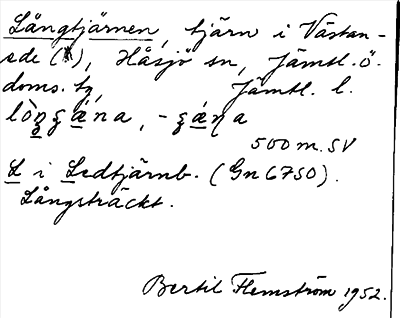 Långtjärnen, tjärn i Västan-
ede (1), Håsjö sn, Jämtl. ö.
doms. tg, Jämtl. l.
500 m. SV
L i Ledtjärnb. (Gn 6750).
Långsträckt.
Bertil Flemström 1952.